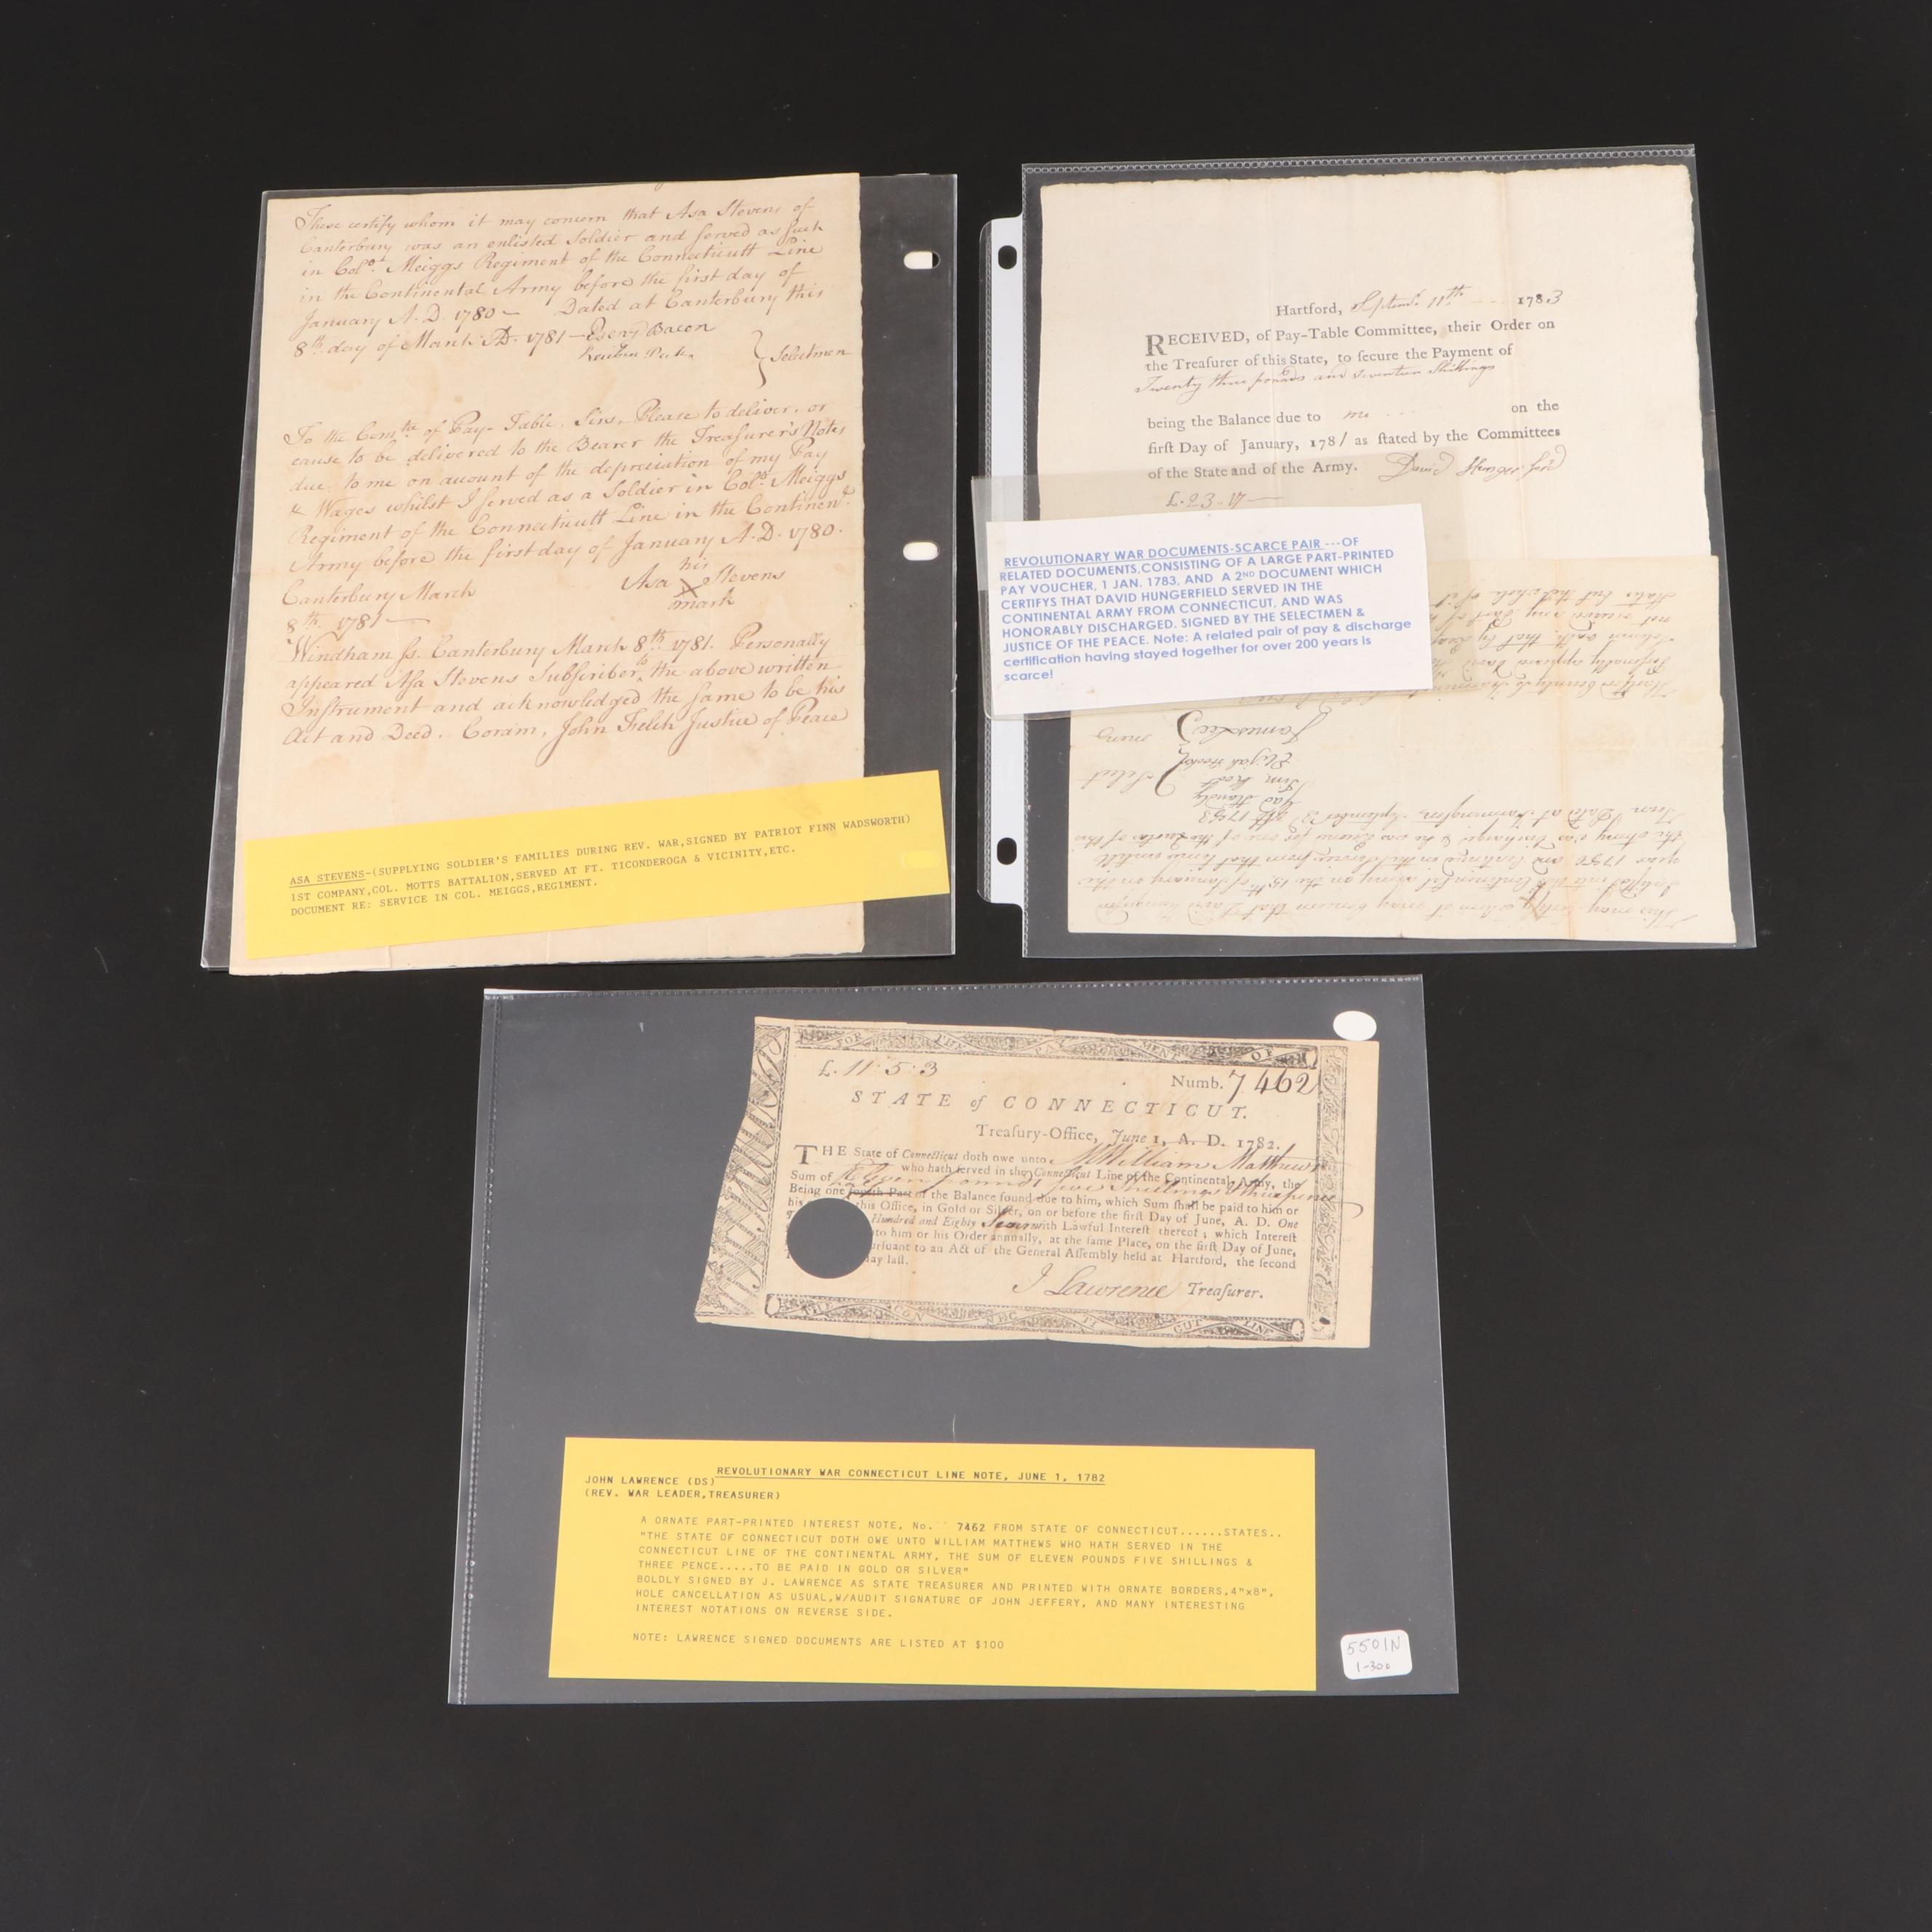 These certify whom it may concern that Asa Stevens of
Canterbury was an enlisted Soldier and served as such
in Colo. Meiggs Regiment of the Connecticutt Line
in the Continental Army before the first day of
January A.D. 1780 – Dated at Canterbury this
8th. day of March A.D. 1781 – Bacon
Selectmen
To the Comtte of Pay-Table, Sirs, Please to deliver, or
cause to be delivered to the Bearer the Treasurer's Notes
due to me on account of the depreciation of my Pay
& Wages whilst I served as a Soldier in Colo. Meiggs
Regiment of the Connecticutt Line in the Continent.
Army before the first day of January A.D. 1780.
his
Asa X Stevens
mark
Canterbury March
8th. 1781 —
Windham Ss. Canterbury March 8th. 1781. Personally
appeared Asa Stevens Subscriber to the above written
Instrument and acknowledged the same to be his
Act and Deed. Coram, John Felch Justice of Peace
ASA STEVENS-(SUPPLYING SOLDIER'S FAMILIES DURING REV. WAR,SIGNED BY PATRIOT FINN WADSWORTH)
1ST COMPANY,COL. MOTTS BATTALION,SERVED AT FT. TICONDEROGA & VICINITY,ETC.
DOCUMENT RE: SERVICE IN COL. MEIGGS,REGIMENT.
Hartford, Septemr. 11th - - - 1783
RECEIVED, of Pay-Table Committee, their Order on
the Treasurer of this State, to secure the Payment of
Twenty three pounds and seventeen Shillings
being the Balance due to me - - - on the
first Day of January, 1781 as stated by the Committees
of the State and of the Army. David
£.23-17-
REVOLUTIONARY WAR DOCUMENTS-SCARCE PAIR ---OF
RELATED DOCUMENTS,CONSISTING OF A LARGE PART-PRINTED
PAY VOUCHER, 1 JAN. 1783, AND A 2ND DOCUMENT WHICH
CERTIFYS THAT DAVID HUNGERFIELD SERVED IN THE
CONTINENTAL ARMY FROM CONNECTICUT, AND WAS
HONORABLY DISCHARGED. SIGNED BY THE SELECTMEN &
JUSTICE OF THE PEACE. Note: A related pair of pay & discharge
certification having stayed together for over 200 years is
scarce!
This may certify whom it may concern that David
Inlisted into the Continental army on the 15th of January in the
year 1780 and Continued in the Service from that time untill
the army was Discharged & he was for one of the Quotas of this
Town Dated at Farmington September 3d AD 1783
Select
men
James Lee
FOR THE PAY MENT OF
£.11:5:3
Numb. 7462
STATE of CONNECTICUT.
Treasury-Office, June 1, A. D. 1782.
THE State of Connecticut doth owe unto William Matthews
who hath served in the Connecticut Line of the Continental Army, the
Sum of Eleven pounds five Shillings & three pence
Being one fourth Part of the Balance found due to him, which Sum shall be paid to him or
his this Office, in Gold or Silver, on or before the first Day of June, A. D. One
Hundred and Eighty Seven with Lawful Interest thereof; which Interest
to him or his Order annually, at the same Place, on the first Day of June,
ursuant to an Act of the General Assembly held at Hartford, the second
ay last.
J Lawrence Treasurer.
THE CON NEC TI CUT LINE
REVOLUTIONARY WAR CONNECTICUT LINE NOTE, JUNE 1, 1782
JOHN LAWRENCE (DS)
(REV. WAR LEADER,TREASURER)
A ORNATE PART-PRINTED INTEREST NOTE, No. 7462 FROM STATE OF CONNECTICUT......STATES..
"THE STATE OF CONNECTICUT DOTH OWE UNTO WILLIAM MATTHEWS WHO HATH SERVED IN THE
CONNECTICUT LINE OF THE CONTINENTAL ARMY, THE SUM OF ELEVEN POUNDS FIVE SHILLINGS &
THREE PENCE.....TO BE PAID IN GOLD OR SILVER"
BOLDLY SIGNED BY J. LAWRENCE AS STATE TREASURER AND PRINTED WITH ORNATE BORDERS,4"x8",
HOLE CANCELLATION AS USUAL,W/AUDIT SIGNATURE OF JOHN JEFFERY, AND MANY INTERESTING
INTEREST NOTATIONS ON REVERSE SIDE.
NOTE: LAWRENCE SIGNED DOCUMENTS ARE LISTED AT $100
5501N
1-300